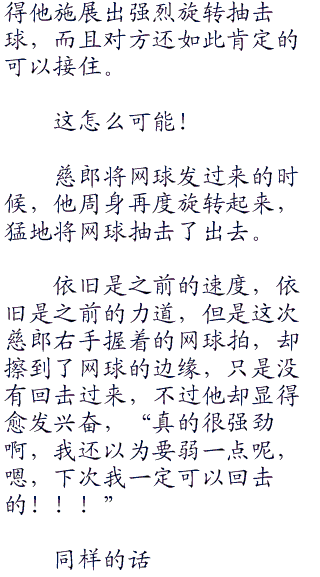 得他施展出强烈旋转抽击
球，而且对方还如此肯定的
可以接住。
这怎么可能！
慈郎将网球发过来的时
候，他周身再度旋转起来，
猛地将网球抽击了出去。
依旧是之前的速度，依
旧是之前的力道，但是这次
慈郎右手握着的网球拍，却
擦到了网球的边缘，只是没
有回击过来，不过他却显得
愈发兴奋，“真的很强劲
啊，我还以为要弱一点呢，
嗯，下次我一定可以回击
的！！！”
同样的话